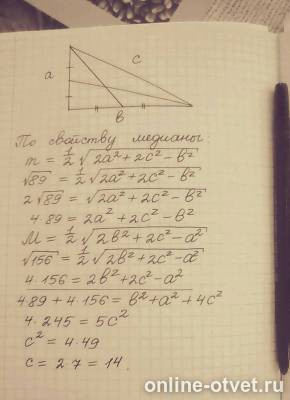 a
c
b
По свойству медианы:
m = 1/2 √(2a² + 2c² - b²)
√89 = 1/2 √(2a² + 2c² - b²)
2√89 = √(2a² + 2c² - b²)
4·89 = 2a² + 2c² - b²
M = 1/2 √(2b² + 2c² - a²)
√156 = 1/2 √(2b² + 2c² - a²)
4·156 = 2b² + 2c² - a²
4·89 + 4·156 = b² + a² + 4c²
4·245 = 5c²
c² = 4·49
c = 2·7 = 14.
online-otvet.ru